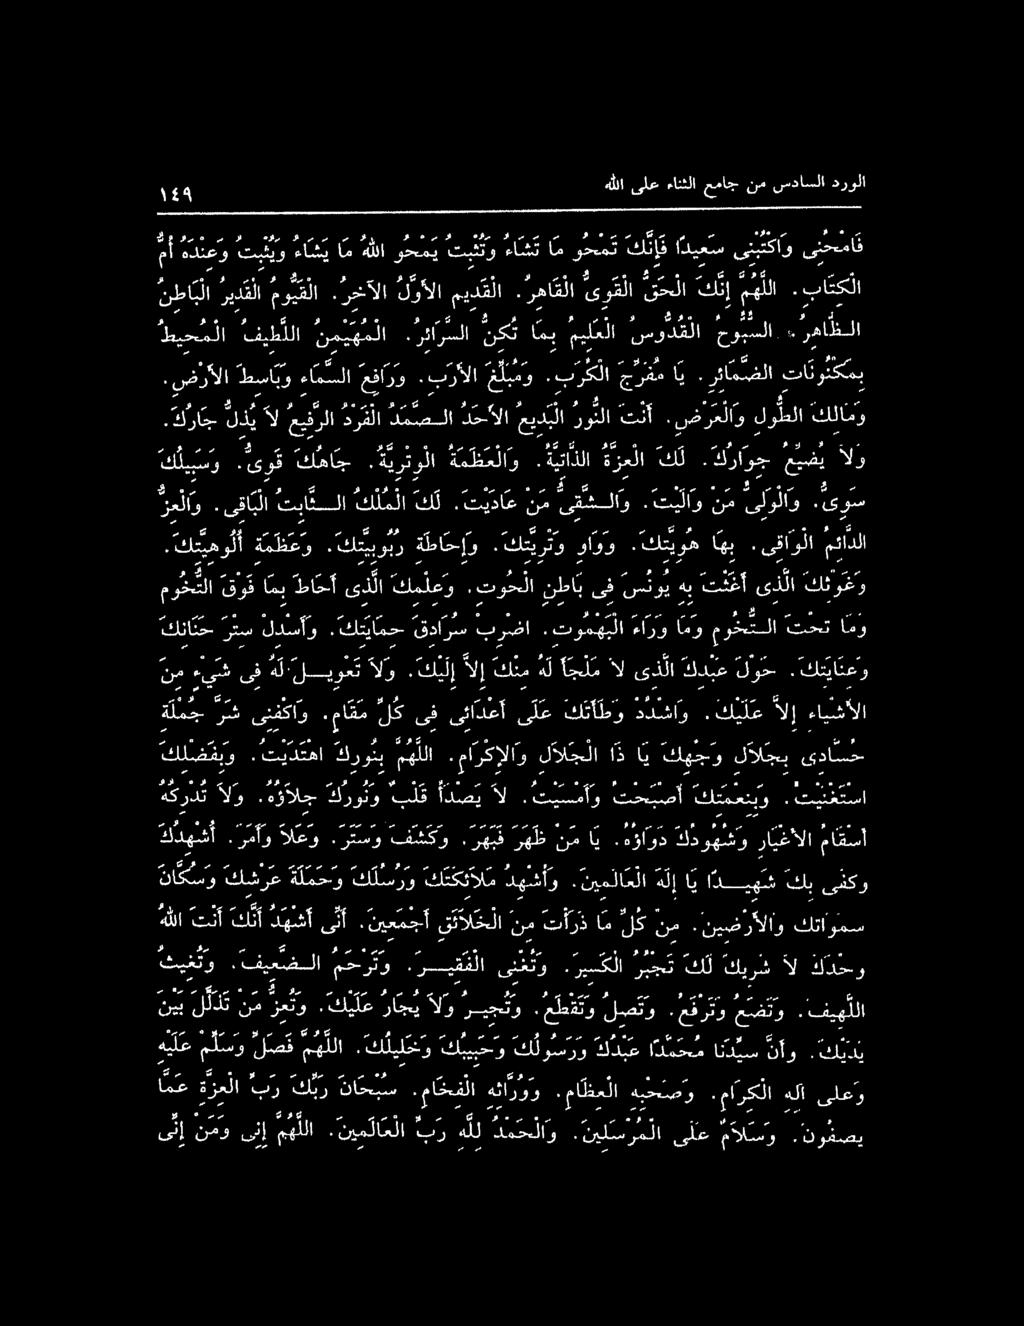 الورد السادس من جامع الثناء على الله ١٤٩
فَامْحُنِى وَاكْتُبْنِى سَعِيدًا فَإِنَّكَ تَمْحُو مَا تَشَاءُ وَتُثْبِتُ يَمْحُو اللهُ مَا يَشَاءُ وَيُثْبِتُ وَعِنْدَهُ أُمُّ
الْكِتَابِ. اللَّهُمَّ إِنَّكَ الْحَقُّ الْقَوِىُّ الْقَاهِرُ. الْقَدِيمِ الأَوَّلُ الآخِرُ. الْقَيُّومُ الْقَدِيرُ الْبَاطِنُ
الـظَّاهِرُ. السُّبُّوحُ الْقُدُّوسُ الْعَلِيمُ بِمَا تُكِنُّ السَّرَائِرُ. الْمُهَيْمِنُ اللَّطِيفُ الْمُحِيطُ
بِمَكْنُونَاتِ الضَّمَائِرِ. يَا مُفَرِّجَ الْكُرَبِ. وَمُبَلِّغَ الأَرَبِ. وَرَافِعَ السَّمَاءِ وَبَاسِطَ الأَرْضِ.
وَمَالِكَ الطُّولِ وَالْعَرْضِ. أَنْتَ النُّورُ الْبَدِيعُ الأَحَدُ الـصَّمَدُ الْفَرْدُ الرَّفِيعُ لاَ يُذِلُّ جَارُكَ.
وَلاَ يُضَيِّعُ جِوَارُكَ. لَكَ الْعِزَّةُ الذَّاتِيَّةُ. وَالْعَظَمَةُ الْوِتْرِيَّةُ. جَاهُكَ قَوِىٌّ. وَسَبِيلُكَ
سَوِىٌّ. وَالْوَلِىُّ مَنْ وَالَيْتَ. وَالـشَّقِىُّ مَنْ عَادَيْتَ. لَكَ الْمُلْكُ الـثَّابِتُ الْبَاقِى. وَالْعِزُّ
الدَّائِمُ الْوَاقِى. بِهَا هُوِيَّتِكَ. وَوَاوِ وَتْرِيَّتِكَ. وَإِحَاطَةِ رُبُوبِيَّتِكَ. وَعَظَمَةِ أُلُوهِيَّتِكَ.
وَغَوْثِكَ الَّذِى أَغَثْتَ بِهِ يُونُسَ فِى بَاطِنِ الْحُوتِ. وَعِلْمِكَ الَّذِى أَحَاطَ بِمَا فَوْقَ التُّخُومِ
وَمَا تَحْتَ الـتُّخُومِ وَمَا وَرَاءَ الْبَهْمُوتِ. اضْرِبْ سُرَادِقَ حِمَايَتِكَ. وَأَسْدِلْ سِتْرَ حَنَانِكَ
وَعِنَايَتِكَ. حَوْلَ عَبْدِكَ الَّذِى لاَ مَلْجَأَ لَهُ مِنْكَ إِلاَّ إِلَيْكَ. وَلاَ تَعْوِيـلَ لَهُ فِى شَىْءٍ مِنَ
الأَشْيَاءِ إِلاَّ عَلَيْكَ. وَاشْدُدْ وَطْأَتَكَ عَلَى أَعْدَائِى فِى كُلِّ مَقَامٍ. وَاكْفِنِى شَرَّ جُمْلَةِ
حُسَّادِى بِجَلاَلِ وَجْهِكَ يَا ذَا الْجَلاَلِ وَالإِكْرَامِ. اللَّهُمَّ بِنُورِكَ اهْتَدَيْتُ. وَبِفَضْلِكَ
اسْتَغْنَيْتُ. وَبِنِعْمَتِكَ أَصْبَحْتُ وَأَمْسَيْتُ. لاَ يَصْدَأُ قَلْبٌ وَنُورُكَ جِلاَؤُهُ. وَلاَ تُدْرِكُهُ
أَسْقَامُ الأَغْيَارِ وَشُهُودُكَ دَوَاؤُهُ. يَا مَنْ ظَهَرَ فَبَهَرَ. وَكَشَفَ وَسَتَرَ. وَعَلاَ وَأَمَرَ. أُشْهِدُكَ
وَكَفَى بِكَ شَهِيـدًا يَا إِلَهَ الْعَالَمِينَ. وَأُشْهِدُ مَلاَئِكَتَكَ وَرُسُلَكَ وَحَمَلَةَ عَرْشِكَ وَسُكَّانَ
سَمَوَاتِكَ وَالأَرْضِينَ. مِنْ كُلِّ مَا ذَرَأْتَ مِنَ الْخَلاَئَقِ أَجْمَعِينَ. أَنِّى أَشْهَدُ أَنَّكَ أَنْتَ اللهُ
وَحْدَكَ لاَ شَرِيكَ لَكَ تَجْبُرُ الْكَسِيرَ. وَتُغْنِى الْفَقِيـرَ. وَتَرْحَمُ الـضَّعِيفَ. وَتُغِيثُ
اللَّهِيفَ. وَتَضَعُ وَتَرْفَعُ. وَتَصِلُ وَتَقْطَعُ. وَتُجِيـرُ وَلاَ يُجَارُ عَلَيْكَ. وَتُعِزُّ مَنْ تَذَلَّلَ بَيْنَ
يَدَيْكَ. وَأَنَّ سَيِّدَنَا مُحَمَّدًا عَبْدُكَ وَرَسُولُكَ وَحَبِيبُكَ وَخَلِيلُكَ. اللَّهُمَّ فَصَلِّ وَسَلِّمْ عَلَيْهِ
وَعَلَى آلِهِ الْكِرَامِ. وَصَحْبِهِ الْعِظَامِ. وَوُرَّاثِهِ الْفِخَامِ. سُبْحَانَ رَبِّكَ رَبِّ الْعِزَّةِ عَمَّا
يَصِفُونَ. وَسَلاَمٌ عَلَى الْمُرْسَلِينَ. وَالْحَمْدُ لِلَّهِ رَبِّ الْعَالَمِينَ. اللَّهُمَّ إِنِى وَمَنْ إِنِّى